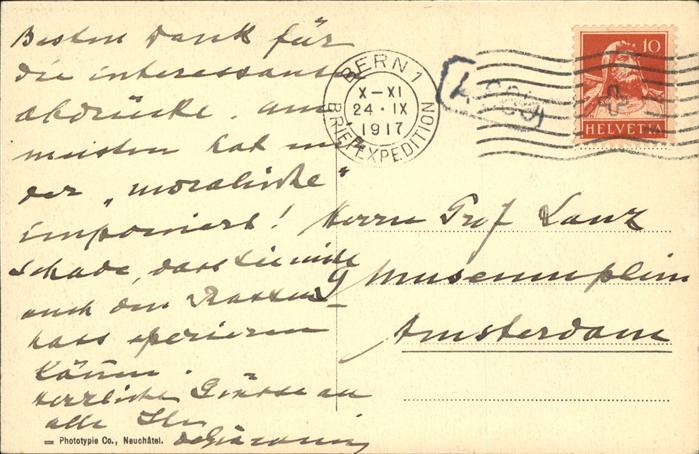 Besten Dank für
die interessante
abdrücke. am
meisten hat mir
der „moralische"
imponiert!
Schade, dass Sie nicht
auch den Rassen-
hass operieren
können.
Herzliche Grüsse an
alle Ihr
deGiacomi
= Phototypie Co., Neuchâtel.
BERN 1
X-XI
24·IX
1917
BRIEFEXPEDITION
10
HELVETIA
Herrn Prof Lanz
9 Museumplein
Amsterdam